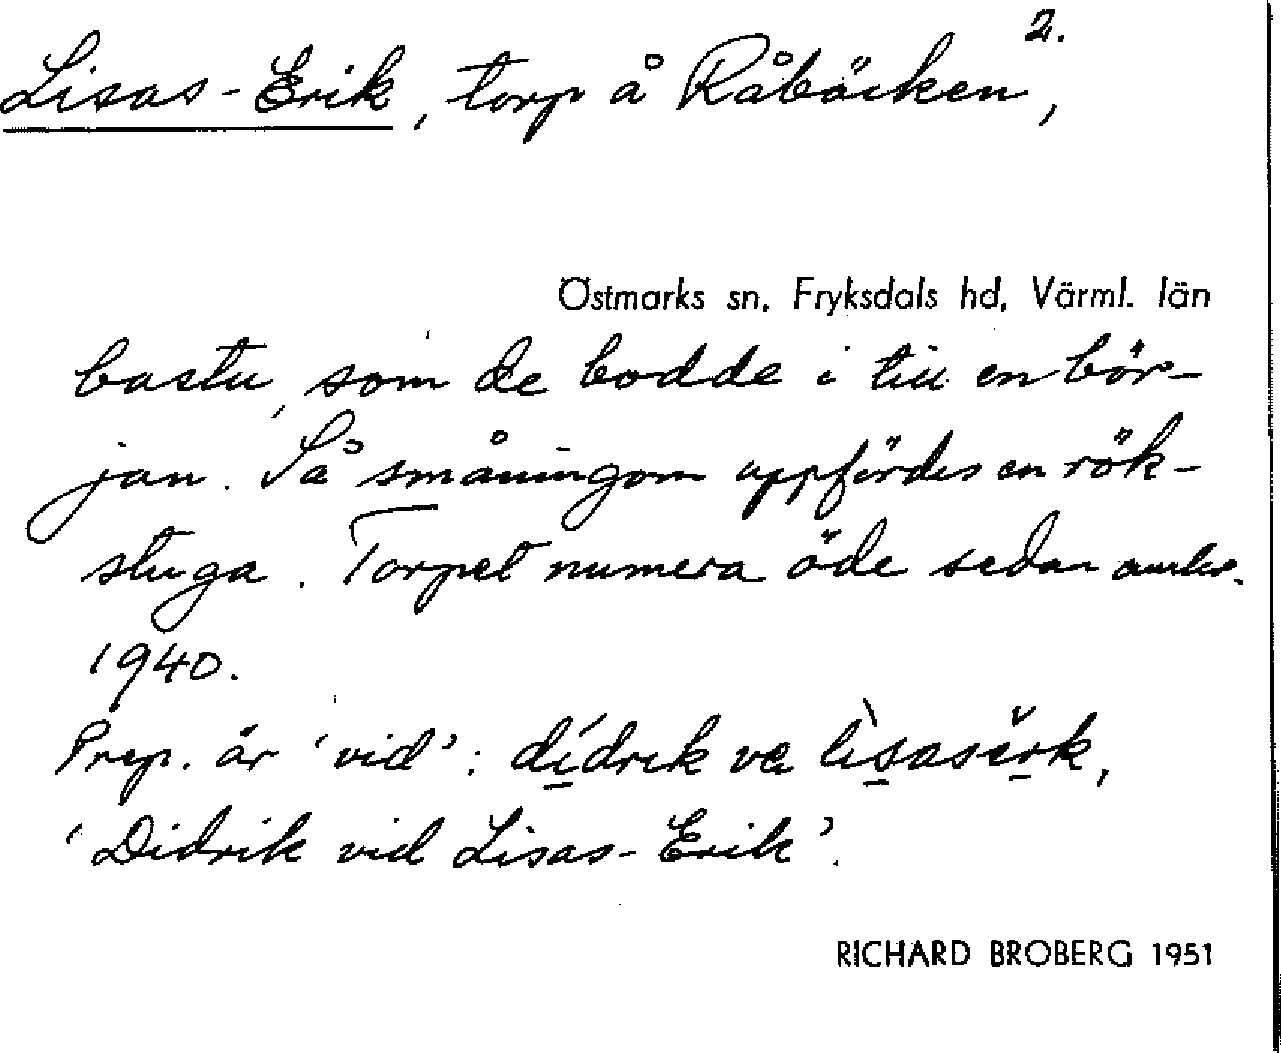 2.
Lisas-Erik, torp å Råbäcken,
Östmarks sn, Fryksdals hd, Värml. län
bastu, som de bodde i till en bör-
jan. Så småningom uppfördes en rök-
stuga. Torpet numera öde sedan
1940.
Prep. är 'vid': dídrik va lìsasěrk,
'Didrik vid Lisas-Erik'.
RICHARD BROBERG 1951